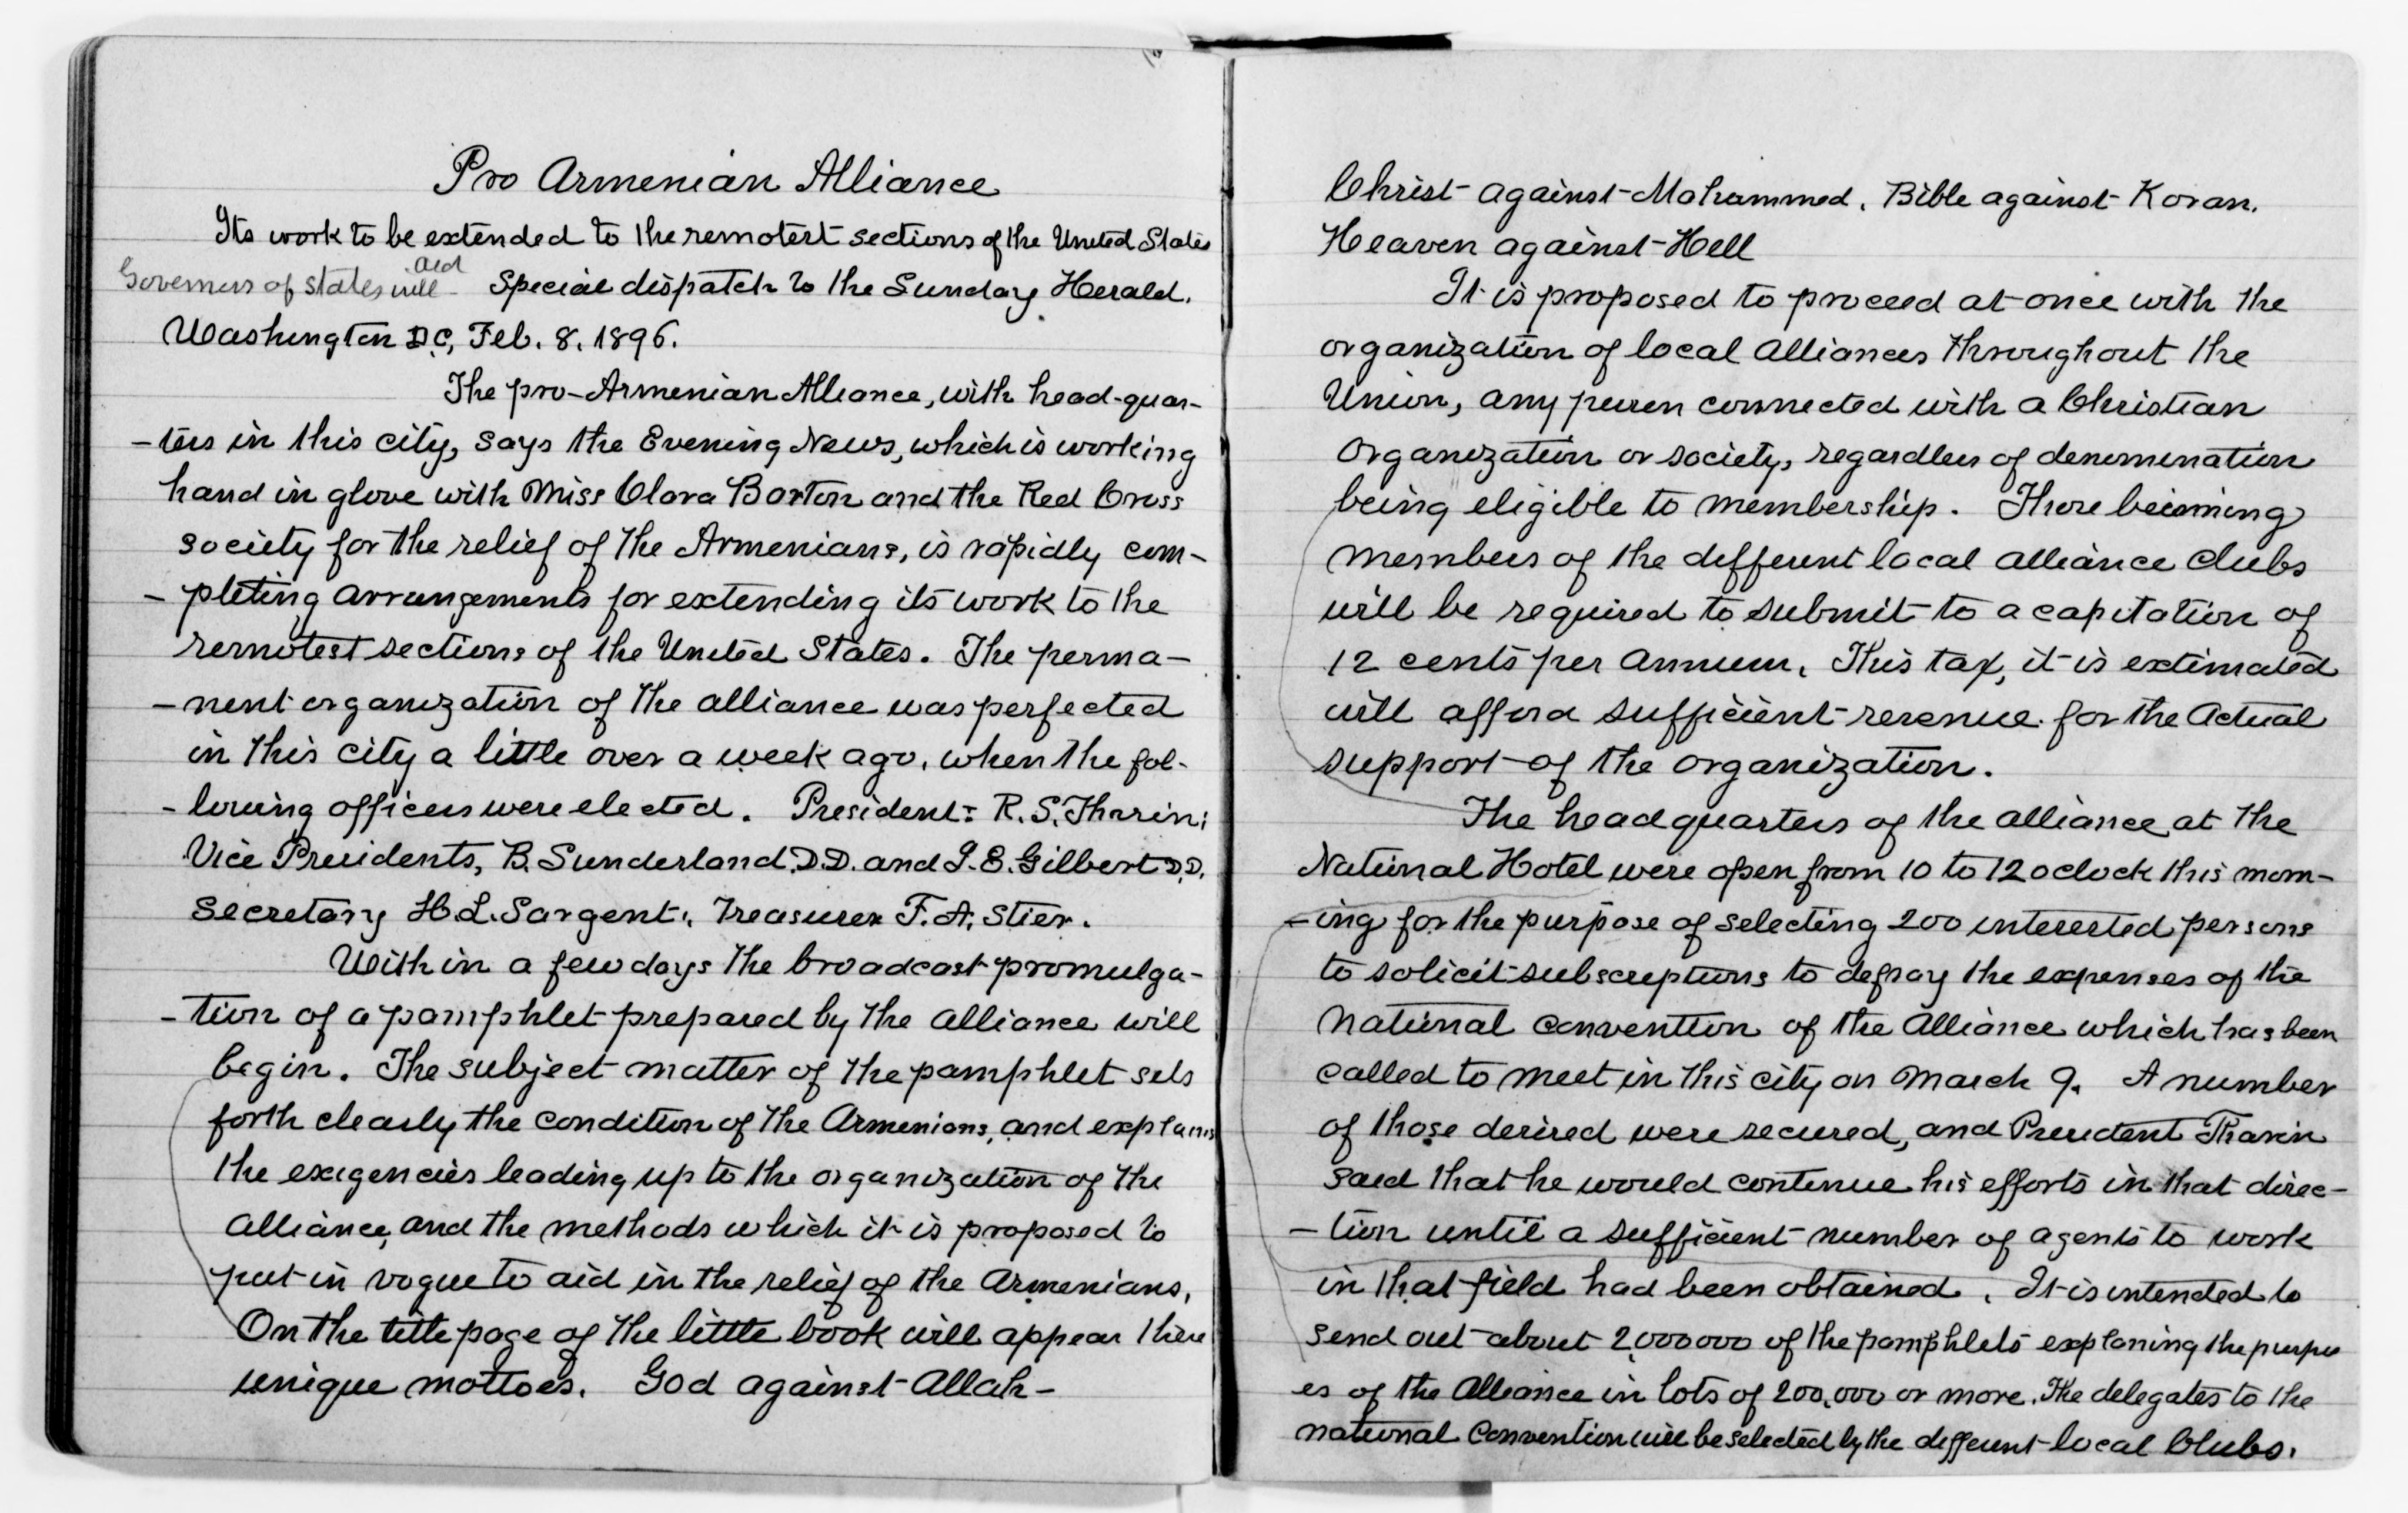 Pro Armenian Alliance
Its work to be extended to the remotest sections of the United States
Governers of states will aid Special dispatch to the Sunday Herald.
Washington D.C, Feb. 8. 1896.
The pro-Armenian Alliance, with head-quar-
-ters in this city, says the Evening News, which is working
hand in glove with Miss Clara Barton and the Red Cross
society for the relief of the Armenians, is rapidly com-
-pleting arrangements for extending its work to the
remotest sections of the United States. The perma-
-nent organization of the alliance was perfected
in this city a little over a week ago, when the fol-
-lowing officers were elected. President: R. S. Tharin;
Vice Presidents, B. Sunderland, D.D. and J. E. Gilbert D.D.
Secretary H. L. Sargent; Treasurer F. A. Stier.
Within a few days the broadcast promulga-
-tion of a pamphlet prepared by the alliance will
begin. The subject matter of the pamphlet sets
forth clearly the condition of the Armenians, and explains
the exigencies leading up to the organization of the
alliance, and the methods which it is proposed to
put in vogue to aid in the relief of the Armenians.
On the title page of the little book will appear these
unique mottoes. God against Allah-
Christ against Mohammed. Bible against Koran.
Heaven against Hell
It is proposed to proceed at once with the
organization of local alliances throughout the
Union, any person connected with a Christian
organization or society, regardless of denomination
being eligible to membership. Those becoming
members of the different local alliance clubs
will be required to submit to a capitation of
12 cents per annum. This tax, it is extimated
will afford sufficient revenue for the actual
support of the organization.
The headquarters of the alliance at the
National Hotel were open from 10 to 12 oclock this morn-
-ing for the purpose of selecting 200 interested persons
to solicit subscriptions to defray the expenses of the
national convention of the Alliance which has been
called to meet in this city on March 9. A number
of those desired were secured, and President Tharin
said that he would continue his efforts in that direc-
-tion until a sufficient number of agents to work
in that field had been obtained. It is intended to
send out about 2,000000 of the pamphlets explaning the purpos
es of the Alliance in lots of 200,000 or more. The delegates to the
national convention will be selected by the different local Clubs.